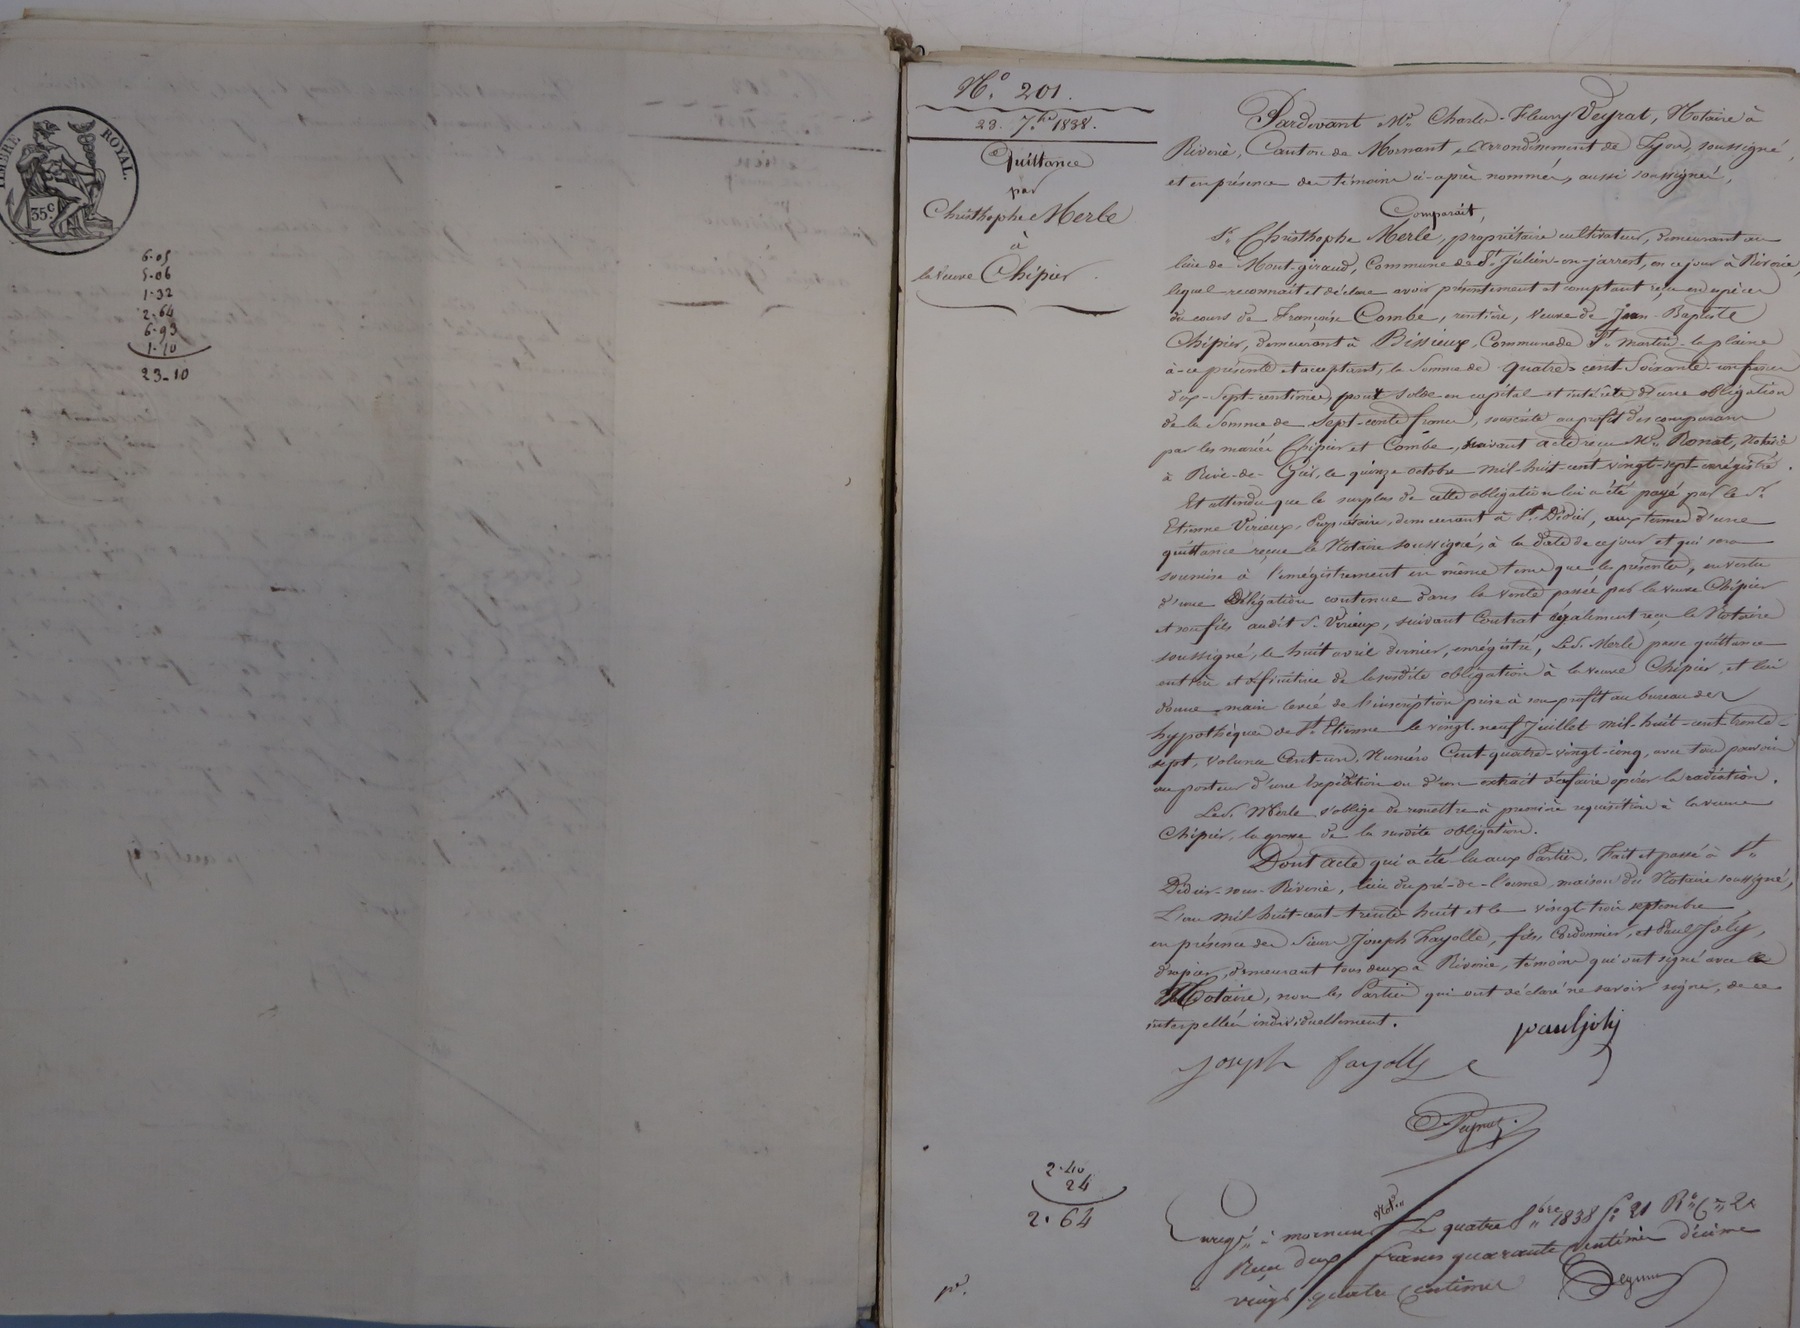 TIMBRE ROYAL.
35c
6.05
5.06
1.32
2.64
6.93
1.10
23-10
N.º 201.
23. 7.bre 1838.
Quittance
par
Christhophe Merle
à
la veuve Chipier.
Pardevant Me Charles-Fleury Veyrat, Notaire à
Riverie, Canton de Mornant, arrondissement de Lyon, soussigné,
et en présence des témoins ci-après nommés, aussi soussignés,
Comparait,
Sr. Christhophe Merle, propriétaire cultivateur, demeurant au
lieu de Mont-giraud, Commune de St Julien-en-jarrest, en ce jour à Riverie,
lequel reconnait et déclare avoir présentement et comptant reçu en espèces
du cours de Françoise Combe, rentière, veuve de Jean-Baptiste
Chipier, demeurant à Bissieux, Commune de St. martin-la plaine
à-ce présente et acceptant, la Somme de quatre-cent-Soixante-un francs
dix-Sept-centimes, pour solde en capital et intérêts d'une obligation
de la Somme de Sept-cents francs, souscrite au profit des comparans
par les mariés Chipier et Combe, suivant acte reçu Me Ronat, Notaire
à Rive-de-Gier, le quinze octobre mil-huit-cent vingt-sept-enrégistré.
Et attendu que le surplus de cette obligation lui a été payé par le Sr.
Etienne Virieux, Propriétaire, demeurant à St. Didier, aux termes d'une
quittance reçue le Notaire soussigné, à la date de ce jour et qui sera
soumise à l'enrégistrement en même tems que les présentes, en vertu
d'une délégation contenue dans la vente passée par la veuve Chipier
et son fils audit Sr. Virieux, suivant Contrat également reçu le Notaire
soussigné, le huit avril dernier, enrégistré, Led. Merle passe quittance
entière et définitive de la susdite obligation à la veuve Chipier, et lui
donne main levée de l'inscription prise à son profit au bureau des
hypothèques de St. Etienne le vingt-neuf Juillet mil-huit-cent-trente-
sept, volume Cent-un, Numéro Cent-quatre-vingt-cinq, avec tous pouvoirs
au porteur d'une Expédition ou d'un extrait d'en faire opérer la radiation.
Led. Merle s'oblige de remettre à première requisition à la veuve
Chipier, la grosse de la susdite obligation.
Dont Acte qui a été lu aux Parties. Fait et passé à St.
Didier-sous-Riverie, lieu du pré-de-l'orme, maison du Notaire soussigné,
L'an mil huit-cent-trente-huit et le vingt trois septembre,
en présence des Sieurs Joseph Fayolle, fils, Cordonnier, et Paul Joly,
drapier, demeurant tous deux à Riverie, témoins qui ont signé avec le
Notaire, non les Parties qui ont déclaré ne savoir signer, de ce
interpellés individuellement.
paul joly
joseph fayolle
Veyrat
Not.re
2.40
24
2.64
Enregé à mornant Le quatre 8bre 1838 fo 21 Ro C 2
Reçu deux francs quarante centimes décime
vingt quatre centimes